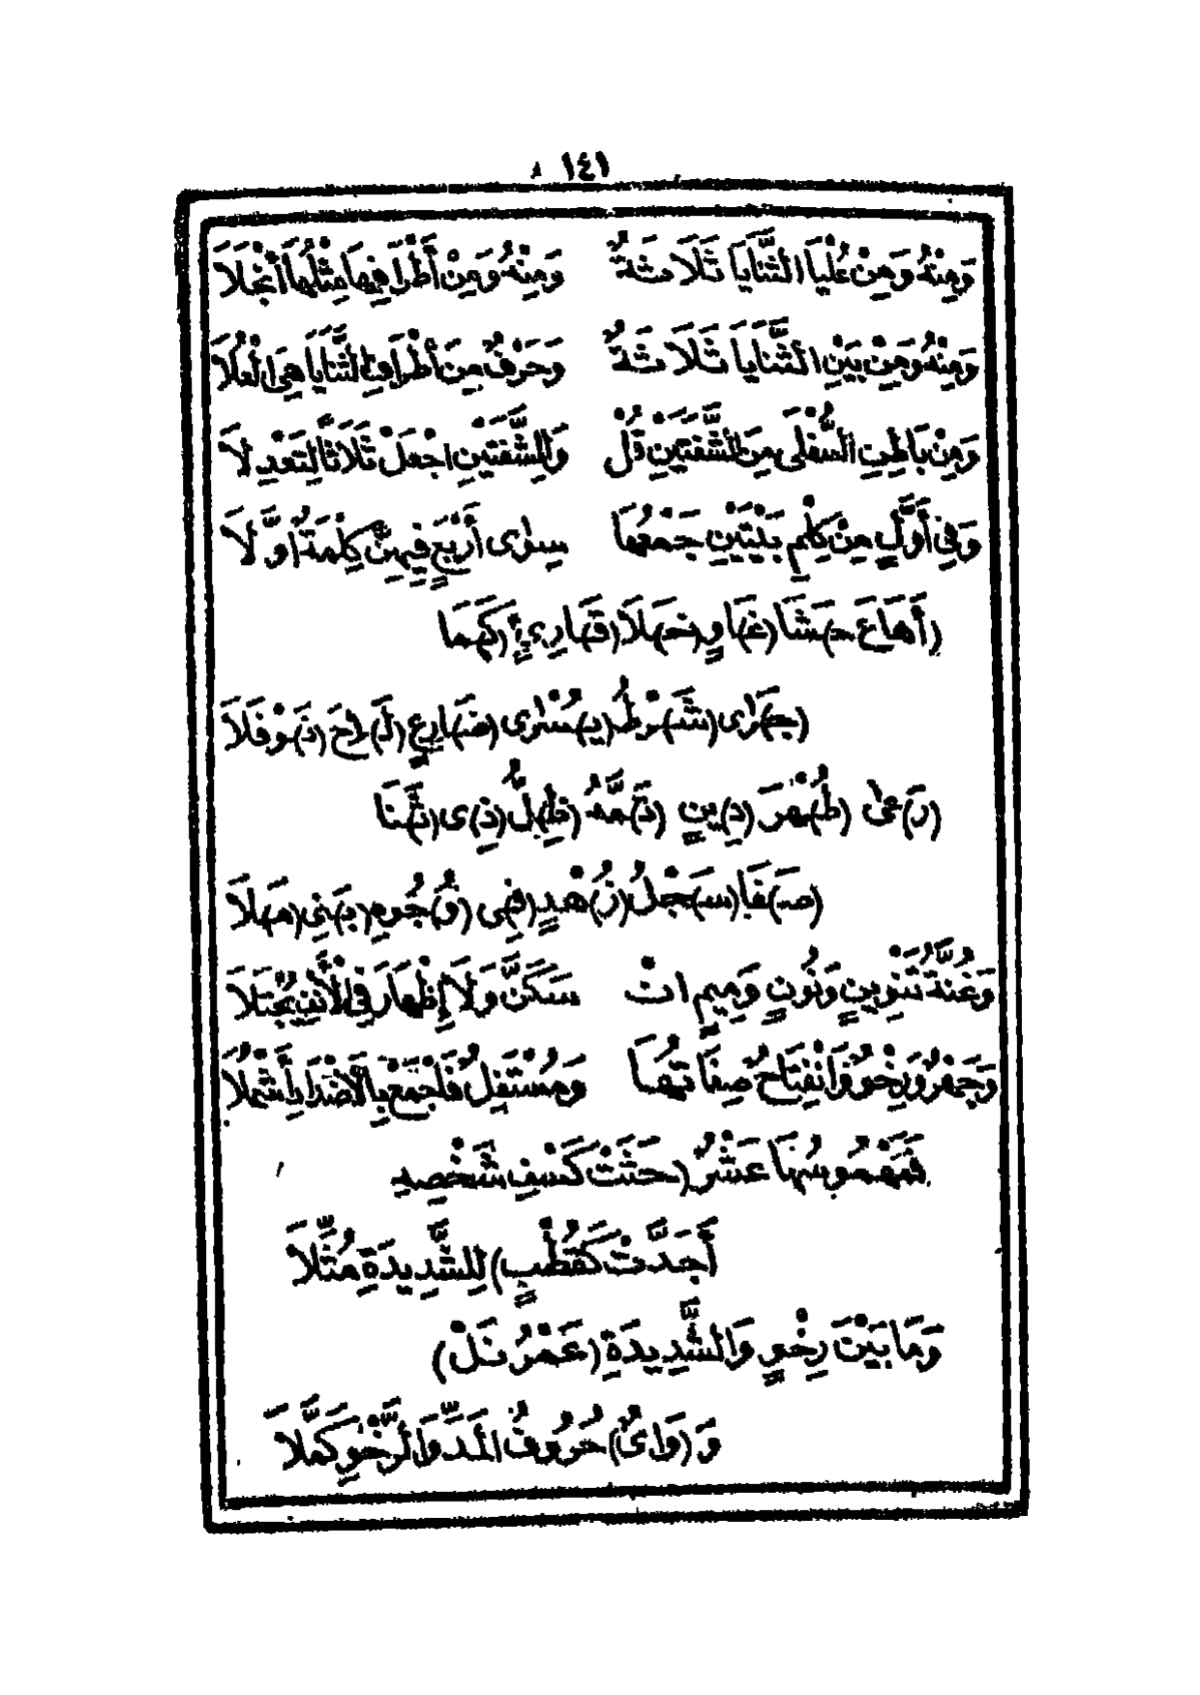 ١٤١
وَمِنْهُ وَمِنْ عُلْيَا الثَّنَايَا ثَلَاثَةٌ وَمِنْهُ وَمِنْ أَطْرَافِهَا مِثْلُهَا انْجَلَا
وَمِنْهُ وَمِنْ بَيْنِ الثَّنَايَا ثَلَاثَةٌ وَحَرْفٌ مِنَ أَطْرَافِ الثَّنَايَا هِىَ الْعُلَا
وَمِنْ بَاطِنِ السُّفْلَى مِنَ الشَّفَتَيْنِ قُلْ وَلِلشَّفَتَيْنِ اجْعَلْ ثَلَاثًا لِتَعْدِلَا
وَفِى أَوَّلٍ مِنْ كِلْمِ بَيْتَيْنِ جَمْعُهَا سِوٰى أَرْبَعٍ فِيهِنَّ كِلْمَةٌ اوَّلَا
(أَهَاعَ حَـ)ـشَا (غَـ)ـاوٍ (خَـ)ـلَا (قَـ)ـارِئٍ (كَـ)ـمَا
(جَـ)ـرٰى (شَـ)ـرْطُ (يُـ)ـسْرٰى (ضَـ)ـارِعٍ (لَـ)ـاحَ (نَـ)ـوْفَلَا
(رَ)عٰى (طُـ)ـهْرَ (دِ)ينٍ (تَـ)ـمَّهُ (ظِـ)ـلُّ (ذِ)ى (ثَـ)ـنَا
(صَـ)ـفَا (سَـ)ـجْلُ (زُ)هْدٍ (فِـ)ـى (وُ)جُوهِ (بَـ)ـنِى (مَـ)ـلَا
وَغُنَّةُ تَنْوِينٍ وَنُونٍ وَمِيمٍ انْ سَكَنَّ وَلَا إِظْهَارَ فِى الْأَنْفِ يُجْتَلَا
وَجَهْرٌ وَرِخْوٌ وَانْفِتَاحٌ صِفَاتُهَا وَمُسْتَفِلٌ فَاجْمَعْ بِالْأَضْدَادِ أَشْمُلَا
فَمَهْمُوسُهَا عَشْرٌ (حَثَتْ كَسْفَ شَخْصِهِ
أَجَدَّتْ كَقُطْبٍ) لِلشَّدِيدَةِ مُثِّلَا
وَمَا بَيْنَ رِخْوٍ وَالشَّدِيدَةِ (عَمْرُ نَلْ)
وَ(وَاىُ) حُرُوفُ الْمَدِّ وَالرِّخْوِ كَمَّلَا